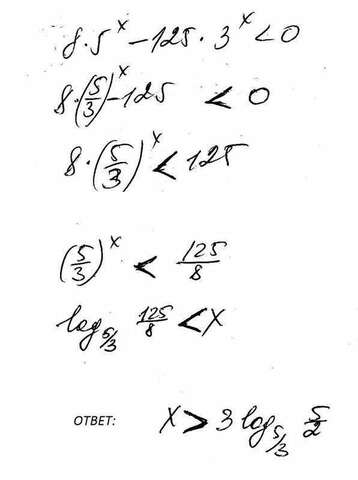 8·5^x − 125·3^x < 0
8·(5/3)^x − 125 < 0
8·(5/3)^x < 125
(5/3)^x < 125/8
log_{5/3} 125/8 < x
ОТВЕТ: x > 3 log_{5/3} 5/2